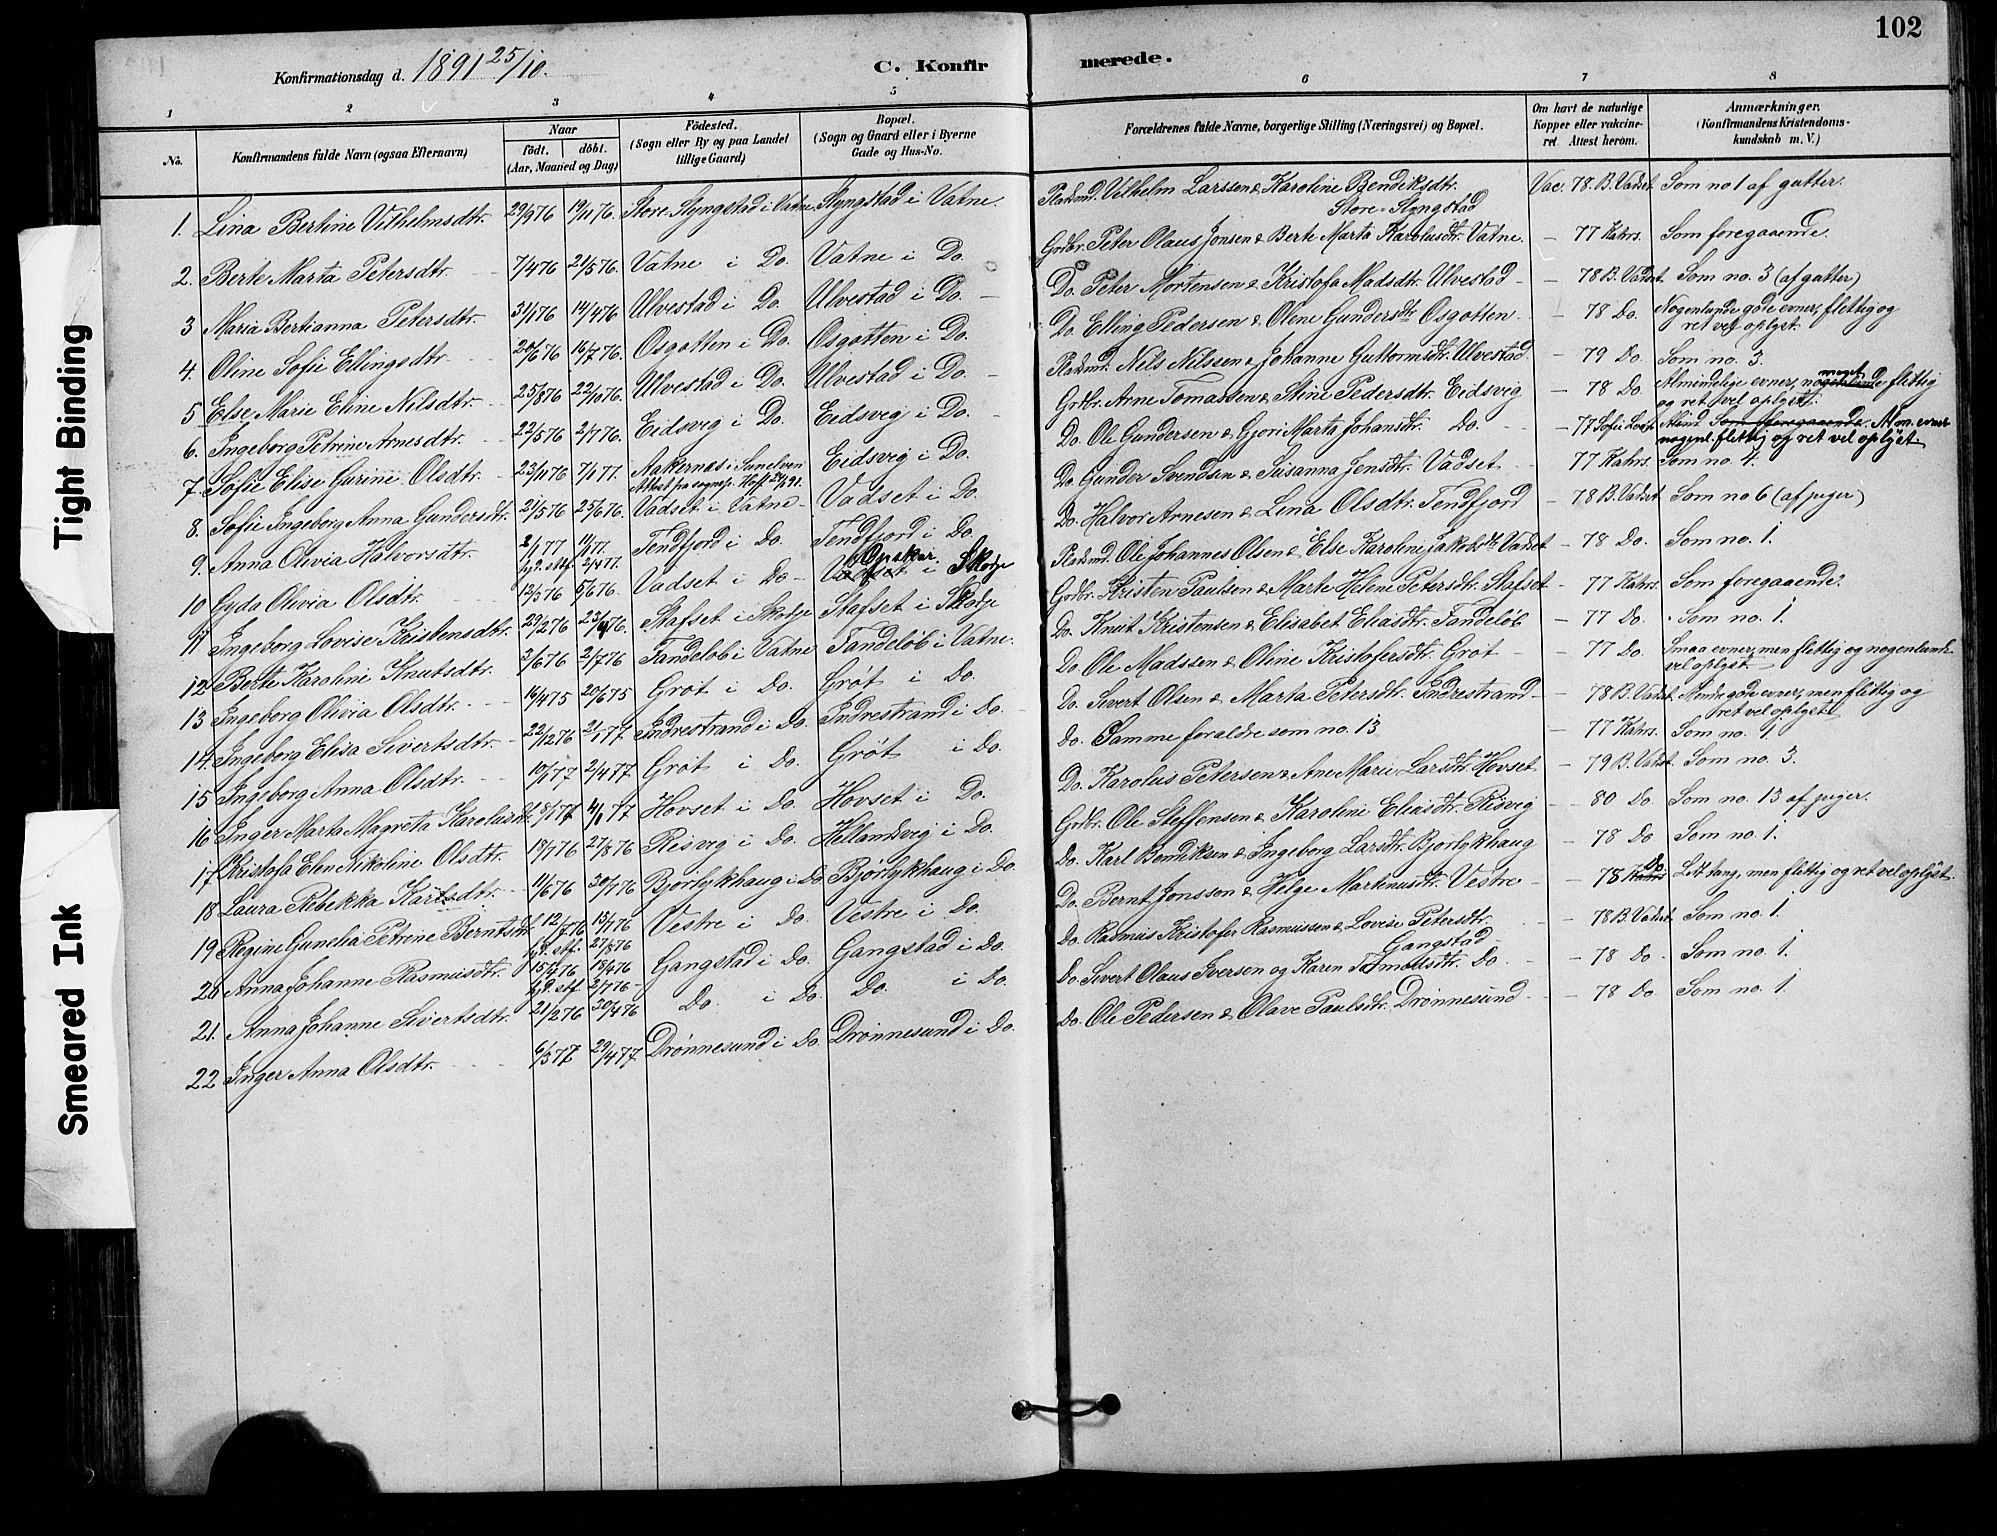 102
Konfirmationsdag d. 1891 25/10. C. Konfirmerede.
1 2 3 4 5 6 7 8
No. Konfirmandens fulde Navn (ogsaa Efternavn) Naar født. døbt. (Aar, Maaned og Dag) Fødested. (Sogn eller By og paa Landet tillige Gaard) Bopæl. (Sogn og Gaard eller i Byerne Gade og Hus-No. Forældrenes fulde Navne, borgerlige Stilling (Næringsvei) og Bopæl. Om havt de naturlige Kopper eller vakcineret Attest herom. Anmærkninger. (Konfirmandens Kristendomskundskab m. V.)
1. Lina Bertine Vilhelmsdtr. 29/9 76 19/11 76. Store Slyngstad i Vatne Slyngstad i Vatne. Pladsmd. Vilhelm Larssen & Karoline Bendiksdtr. Store-Slyngstad Vac. 78. B. Vadset. Som no 1 af gutter.
2. Berte Marta Petersdtr. 7/4 76 21/5 76. Vatne i Do. Vatne i Do. Grdbr. Peter Olaus Jonsen & Berte Marta Karolusdtr. Vatne. – 77 Kahrs. Som foregaaende.
3 Maria Bertianna Petersdtr. 31/1 76 14/4 76 Ulvestad i Do. Ulvestad i Do. Do. Peter Mortensen & Kristofa Madsdtr. Ulvestad – 78 B. Vadset. Som no. 3 (af gutter)
4. Oline Sofie Ellingsdtr. 20/6 76 16/7 76. Osgotten i Do. Osgotten i Do. Do. Elling Pedersen & Olene Gundersdtr. Osgotten – 78 Do. Nogenlunde gode evner, flittig og ret vel oplyst.
5 Else Marie Eline Nilsdtr. 25/8 76 22/10 76. Ulvestad i Do. Ulvestad i Do. Pladsmd. Nels Nilssen & Johanne Guttormsdtr. Ulvestad – 79 Do. Som no. 3.
6. Ingeborg Petrine Arnesdtr. 22/5 76 2/7 76. Eidsvig i Do. Eidsvig i Do. Grdbr. Arne Tomassen & Stine Pedersdtr. Eidsvig – 78 Do. Almindelige evner, nogenlunde meget flittig og ret vel oplyst.
7. Sofie Elise Gurine Olsdtr. 23/11 76 7/1 77. Aakernæs i Sunelven Eidsvig i Do. Do. Ole Gundersen & Gjori Marta Johansdtr. Do. – 77 Som foregaaende. Alm. evner nogenl. flittig og ret vel oplyst
8. Sofie Ingeborg Anna Gundersdtr. 21/5 76 25/6 76. Vadset i Vatne Vadset i Do. Do. Gunder Svendsen & Susanna Jensdtr. Vadset 77 Kahrs. Som no. 4.
9. Anna Olivia Halvorsdtr. 2/1 77 Tendfjord i Do. Tendfjord i Do. Do. Halvor Arnesen & Lina Olsdtr. Tendfjord – 78 B. Vadset. Som no 6 (af piger)
10 Gyda Olivia Olsdtr. 12/5 76 5/6 76. Vadset i Do. Vadset i Skodje Pladsmd. Ole Johannes Olsen & Else Karoline Jakobsdtr. Vadset – 78 Do. Som no. 1.
11 Ingeborg Lovise Kristensdtr. 29/2 76 23/4 76. Slafset i Skodje Slafset i Skodje Grdbr. Kristen Paulsen & Marte Helene Petersdtr. Slafset – 77 Kahrs. Som foregaaende.
12 Berte Karoline Knutsdtr. 3/6 76 2/7 76 Tandeløb i Vatne Tandeløb i Vatne. Do. Knut Kristensen & Elisabet Eliasdtr. Tandeløb – 77 Do. Som no. 1.
13 Ingeborg Olivia Olsdtr. 16/4 75 20/6 75 Grøt i Do. Grøt i Do. Do Ole Madssen & Oline Kristofersdtr. Grøt – 77 Do. Smaa evner, men flittig og nogenlunde vel oplyst
14. Ingeborg Elisa Sivertsdtr. 22/12 76 2/1 77 Indrestrand i Do. Indrestrand i Do. Do. Sivert Olsen & Marta Petersdtr. Indrestrand – 78 B. Vadset. Mindre gode evner, men flittig og ret vel oplyst
15 Ingeborg Anna Olsdtr. 10/1 77 2/4 77 Grøt i Do. Grøt i Do. Do. Samme forældre som no. 13 – 77 Kahrs. Som no. 1
16 Inger Marta Magreta Karolusdtr. 8/1 77 77 Hovset i Do. Hovset i Do. Do. Karolus Petersen & Ane Marie Larsdtr. Hovset – 79 B. Vadset. Som no. 3.
17 Kristofa Elen Nikoline Olsdtr. 18/7 76 27/8 76 Risvig i Do. Hellandsvig i Do. Grdbr. Ole Steffensen & Karoline Eliasdtr. Risvig – 80 Do. Som no. 13 af piger.
18 Laura Rebekka Karlsdtr. 11/6 76 30/7 76 Bjørlykhaug i Do. Bjørlykhaug i Do. Do. Karl Bendiksen & Ingeborg Larsdtr. Bjorlykhaug – 78 Do Som no. 1.
19 Regine Gunelia Petrine Berntsdtr. 12/7 76 Vestre i Do. Vestre i Do. Do. Bernt Jonsson & Helge Martinusdtr. Vestre – 78 Do. Lidt tung, men flittig og ret vel oplyst.
20 Anna Johanne Rasmusdtr. 2/7 76 Gangstad i Do. Gangstad i Do. Do. Rasmus Kristofer Rasmussen & Lovise Petersdtr. Gangstad – 78 B. Vadset. Som no. 1.
21. Anna Johanne Sivertsdtr. 21/2 76 30/4 76 Do. i Do. Do. i Do. Do. Sivert Olaus Iversen og Karen Do – 78 Do. Som no. 1.
22 Inger Anna Olsdtr. 6/3 77 29/4 77 Drønnesund i Do. Drønnesund i Do. Do. Ole Pedersen & Olave Paulsdtr. Drønnesund – 78 Do. Som no. 1.
Tight Binding
Smeared Ink